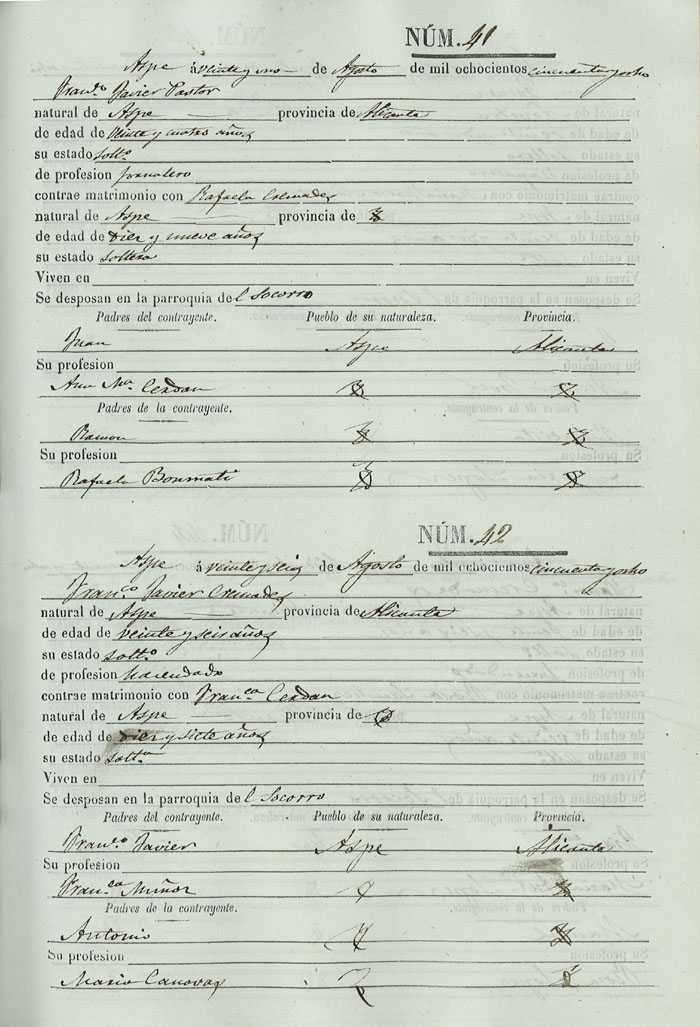 NÚM. 41
Aspe á veinte y uno de Agosto de mil ochocientos cincuenta y ocho
Franco Javier Pastor
natural de Aspe provincia de Alicante
de edad de años
su estado solto
de profesion jornalero
contrae matrimonio con Rafaela Cremades
natural de Aspe provincia de
de edad de diez y nueve años
su estado soltera
Viven en
Se desposan en la parroquia del Socorro
Padres del contrayente. Pueblo de su naturaleza. Provincia.
Juan Aspe Alicante
Su profesion
Ana Ma Cerdan
Padres de la contrayente.
Ramon
Su profesion
Rafaela Bonmati
NÚM. 42
Aspe á veinte y seis de Agosto de mil ochocientos cincuenta y ocho
Franco Javier Cremades
natural de Aspe provincia de Alicante
de edad de veinte y seis años
su estado solto
de profesion hacendado
contrae matrimonio con Franca Cerdan
natural de Aspe provincia de
de edad de diez y siete años
su estado solta
Viven en
Se desposan en la parroquia del Socorro
Padres del contrayente. Pueblo de su naturaleza. Provincia.
Franco Javier Aspe Alicante
Su profesion
Franca Muñoz
Padres de la contrayente.
Antonio
Su profesion
Maria Canovas